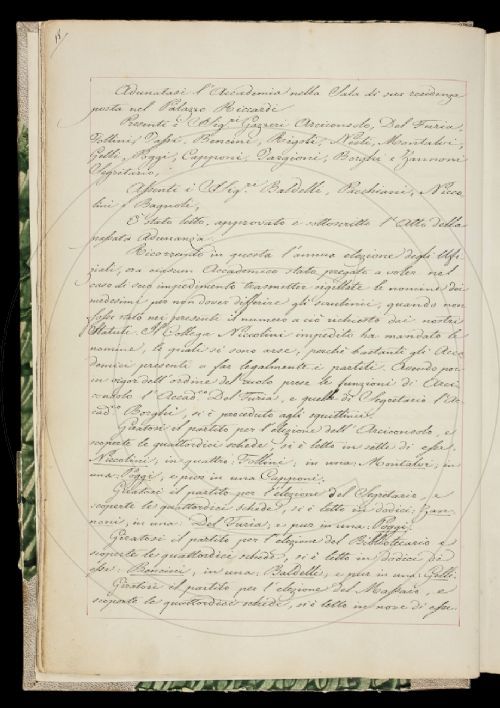 Adunatasi l'Accademia nella Sala di sua residenza
posta nel Palazzo Riccardi
Presenti i SSig.ri Gazzeri Arciconsolo, Del Furia,
Follini, Tassi, Bencini, Rigoli, Nesti, Montalvi,
Gelli, Poggi, Capponi, Targioni, Borghi e Zannoni
Segretario,
Assenti i SSig.ri Baldelli, Pacchiani, Nicco-
lini e Bagnoli,
È stato letto, approvato e sottoscritto l'Atto della
passata Adunanza.
Ricorrendo in questa l'annua elezione degli Ufi-
ziali, era ciascun Accademico stato pregato a voler nel
caso di suo impedimento trasmettere sigillate le nomine dei
medesimi per non dover differire gli scrutinii, quando non
fosse stato nei presenti il numero a ciò richiesto dai nostri
Statuti. Il Collega Niccolini impedito ha mandato le
nomine, le quali si sono arse, perchè bastanti gli Acca-
demici presenti a far legalmente i partiti. Avendo poi
in vigor dell'ordine del ruolo prese le funzioni di Arci-
consolo l'Accad.co Del Furia, e quelle di Segretario l'Ac-
cad.co Borghi, si è proceduto agli squittinii.
Giratosi il partito per l'elezione dell'Arciconsolo, e
scoperte le quattordici schede, si è letto in sette di esse:
Niccolini; in quattro: Follini; in una: Montalvi; in
una: Poggi; e pur in una Capponi.
Giratosi il partito per l'elezione del Segretario, e
scoperte le quattordici schede, si è letto in dodici: Zan-
noni, in una: Del Furia; e pur in una: Poggi.
Giratosi il partito per l'elezione del Bibliotecario e
scoperte le quattordici schede, si è letto in dodici di
esse: Bencini, in una: Baldelli, e pur in una: Gelli.
Giratosi il partito per l'elezione del Massaio, e
scoperte le quattordici schede, si è letto in nove di esse: